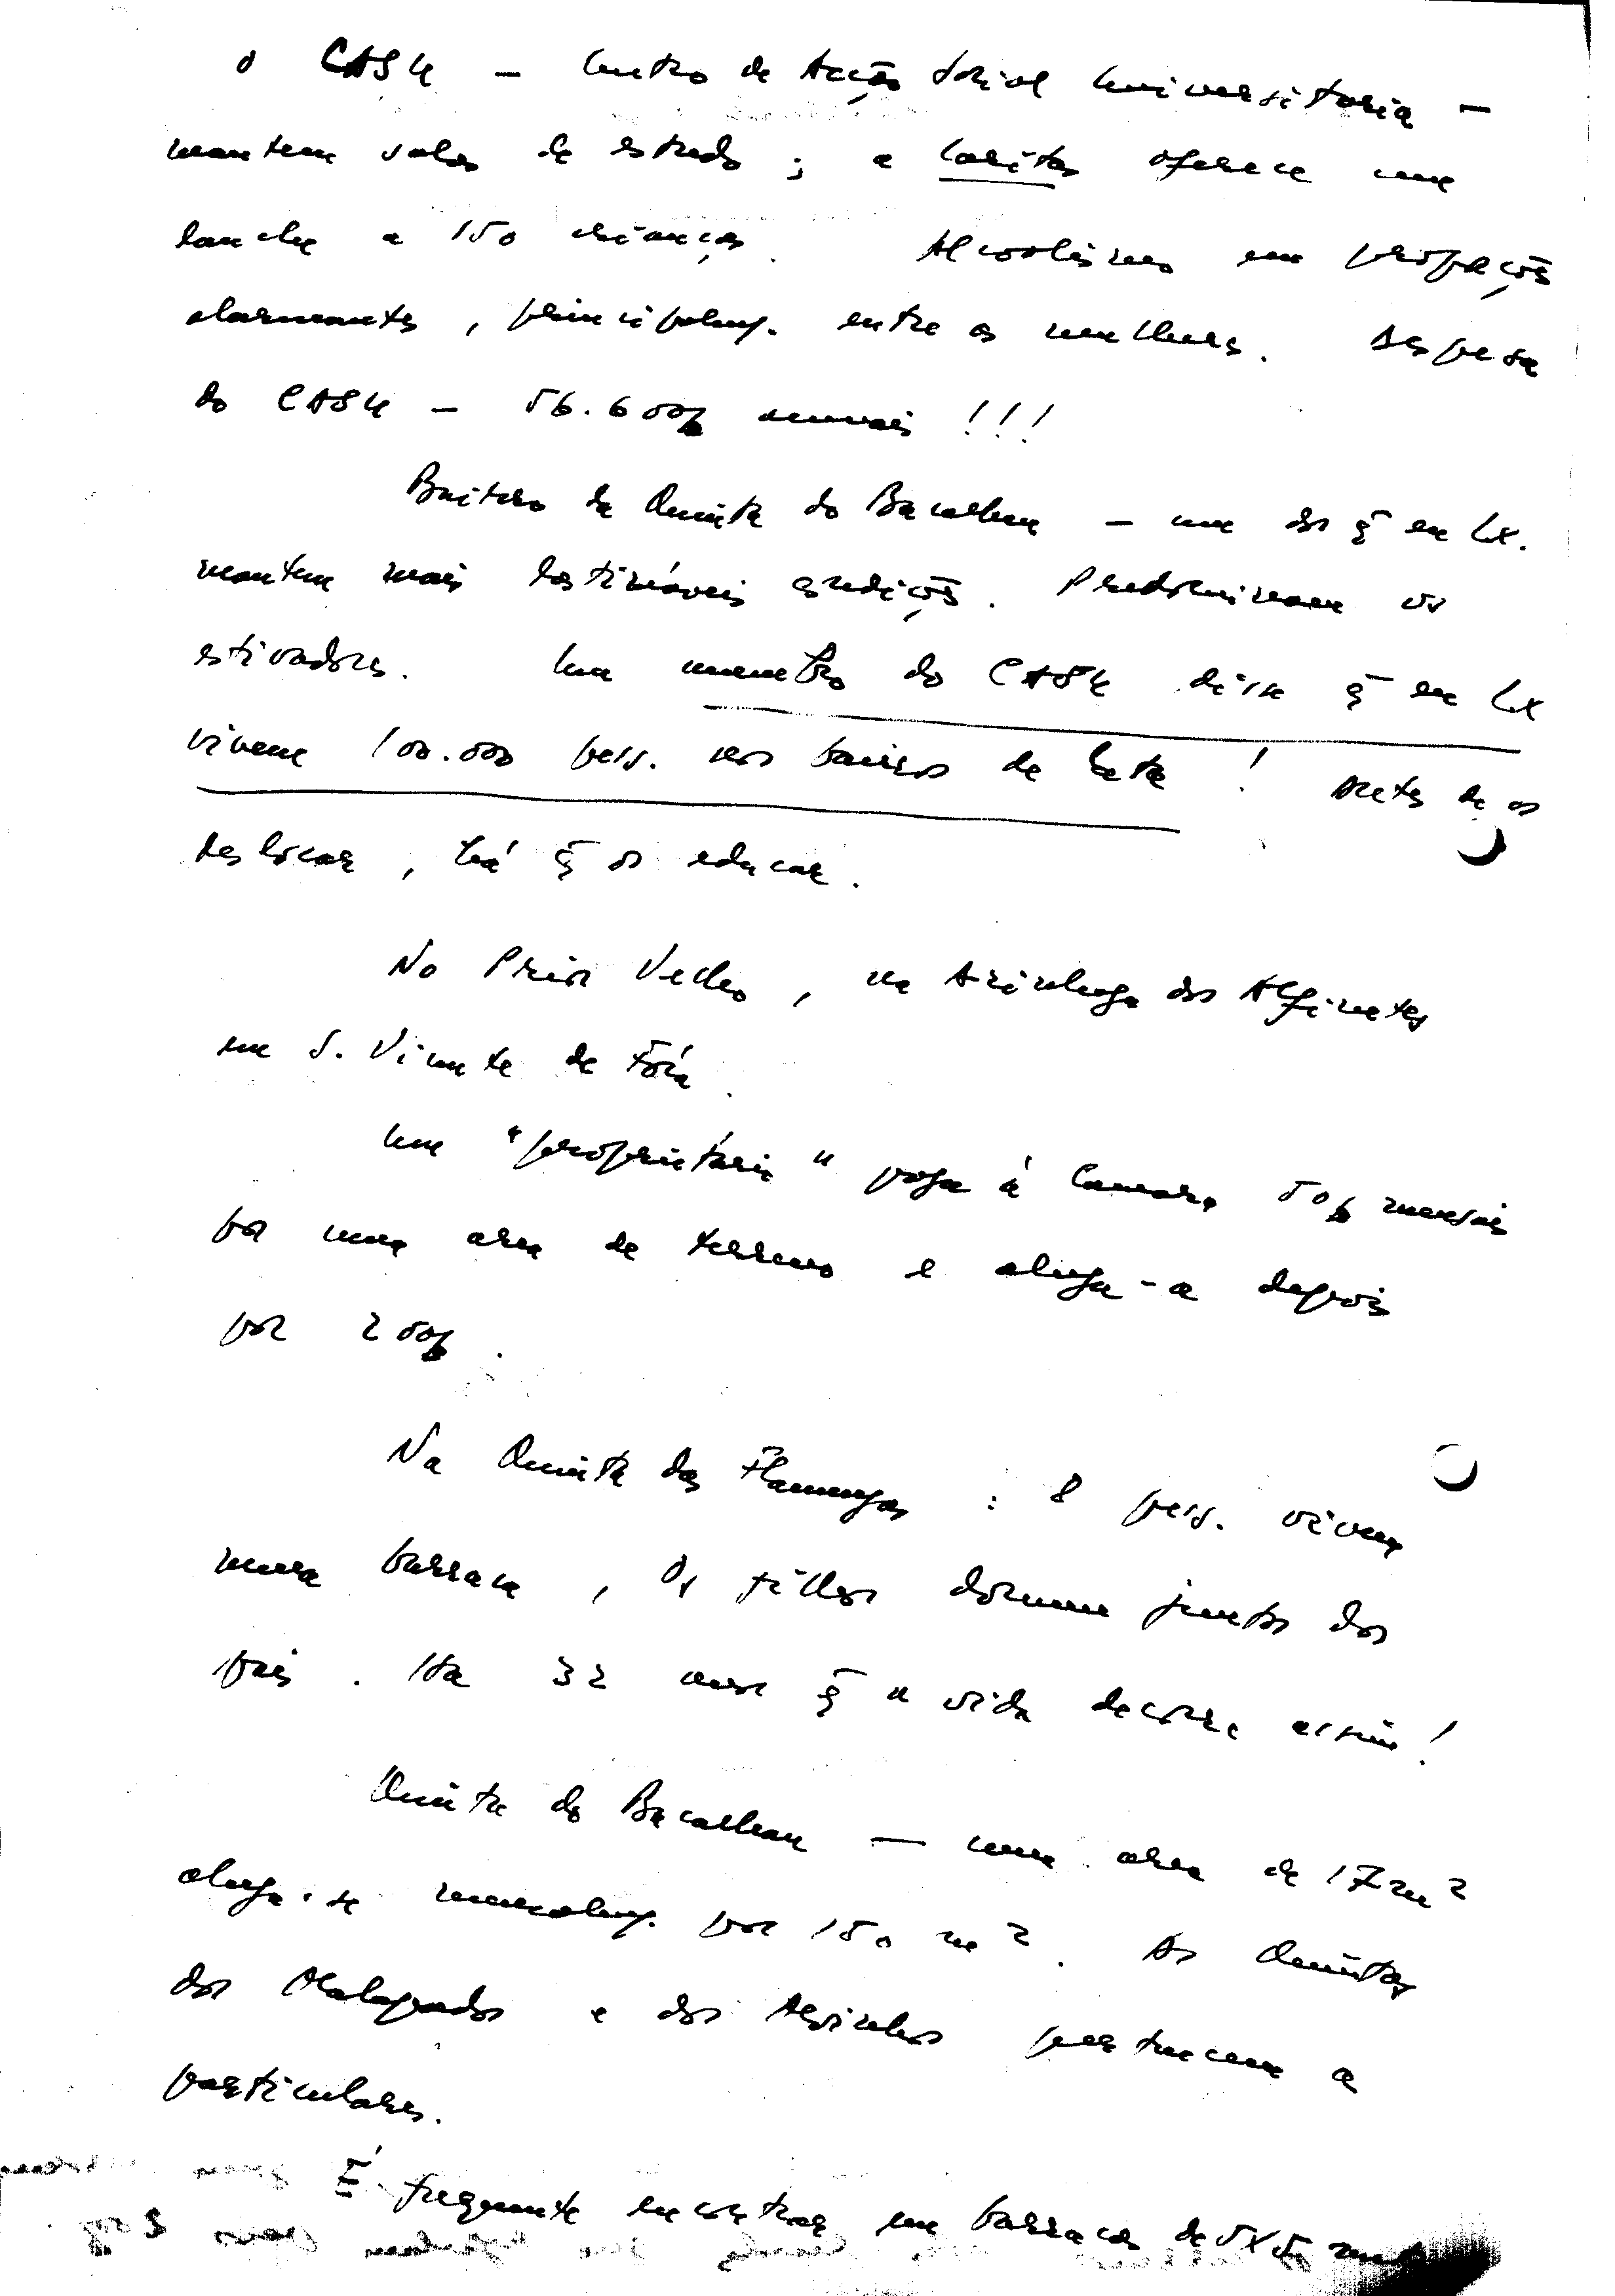 O CASU — Centro de Acção Social Universitaria —
mantem salas de estudo ; a Caritas oferece um
lanche a 150 crianças. Alcoolismo em propoções
alarmantes, principalmᵗᵉ. entre as mulheres. Despesa
do CASU — 56.600$ anuais !!!
Bairro da Quinta do Bacalhau — um dos q̄ em Lx.
mantem mais lastimáveis condições. Predominam os
estivadores. Um membro do CASU disse q̄ em Lx
vivem 100.000 pess. nos bairros de lata ! Antes de os
deslocar, há q̄ os educar.
No Prior Velho, na Azinhaga dos Alfinetes
em S. Vicente de Fóra.
Um "proprietario" paga à Camara 50$ mensais
por uma area de terreno e aluga-a depois
por 200$.
Na Quinta das Flamengas : 8 pess. vivem
numa barraca, Os filhos dormem juntos dos
pais. Ha 32 anos q̄ a vida decorre assim !
Quinta do Bacalhau — uma area de 17 m²
aluga-se por 150 m². As Quintas
dos e dos Alpinhos pertencem a
particulares.
É frequente encontrar em barracas de 5x5